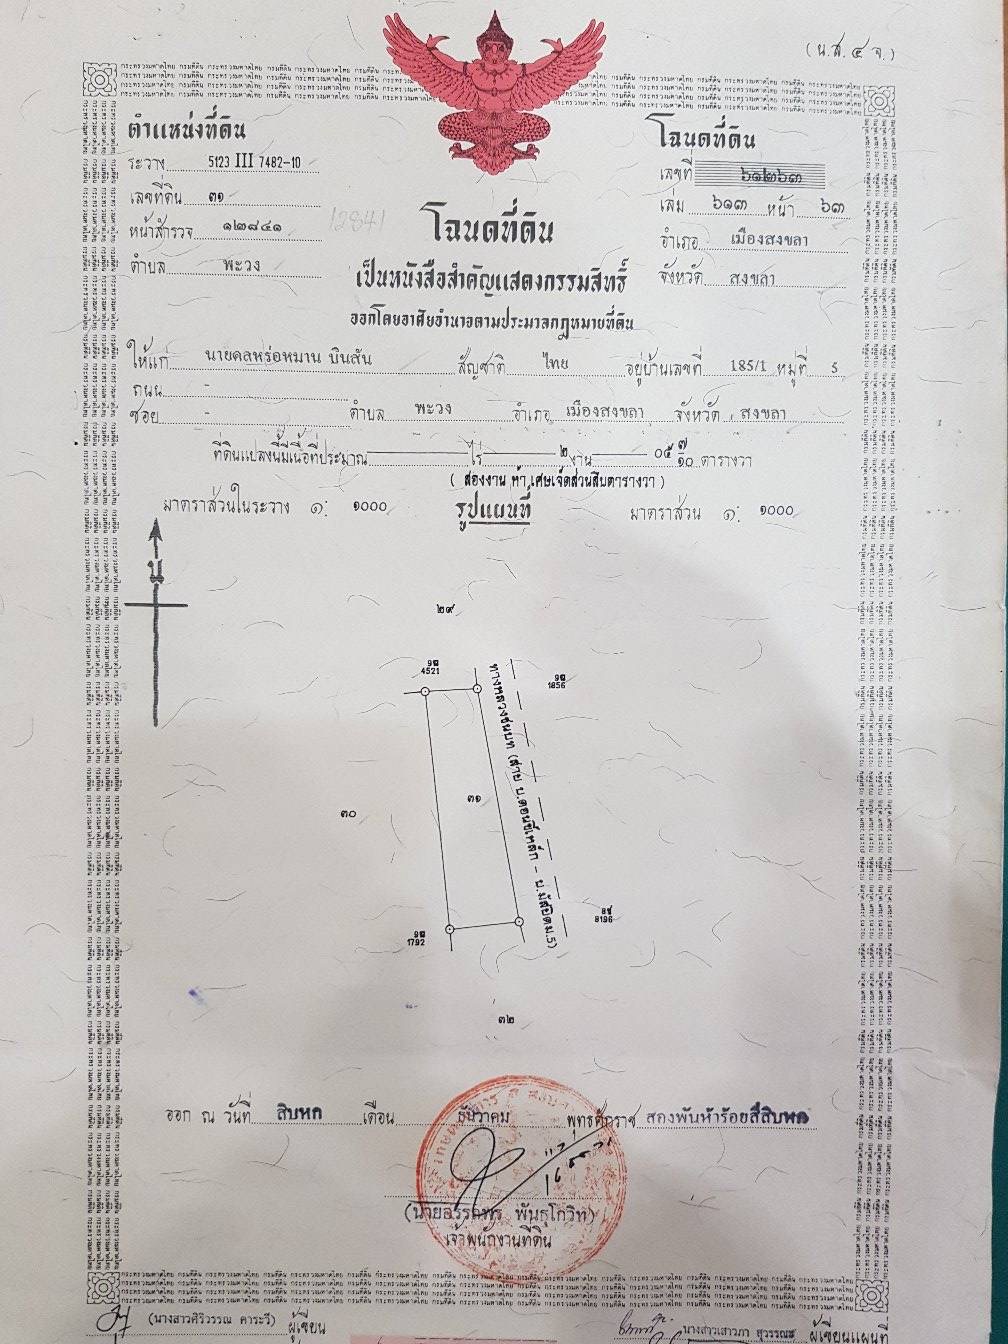 (น.ส.๔ จ.)
ตำแหน่งที่ดิน
ระวาง 5123 III 7482-10
เลขที่ดิน ๓๑
หน้าสำรวจ ๑๒๘๔๑
12841
ตำบล พะวง
โฉนดที่ดิน
เลขที่ ๖๑๒๖๓
เล่ม ๖๑๓ หน้า ๖๓
อำเภอ เมืองสงขลา
จังหวัด สงขลา
โฉนดที่ดิน
เป็นหนังสือสำคัญแสดงกรรมสิทธิ์
ออกโดยอาศัยอำนาจตามประมวลกฎหมายที่ดิน
ให้แก่ นายดลหร่อหมาน บินสัน สัญชาติ ไทย อยู่บ้านเลขที่ 185/1 หมู่ที่ 5
ถนน -
ซอย - ตำบล พะวง อำเภอ เมืองสงขลา จังหวัด สงขลา
ที่ดินแปลงนี้มีเนื้อที่ประมาณ ไร่ ๒ งาน ๐๕ ๗/๑๐ ตารางวา
( สองงาน ห้า เศษเจ็ดส่วนสิบตารางวา )
มาตราส่วนในระวาง ๑: ๑๐๐๐ รูปแผนที่ มาตราส่วน ๑: ๑๐๐๐
น
๒๙
4521
1856
ทางหลวงชนบท (สาย บ.ดอนขี้เหล็ก -
๓๑
๓๐
1792
8196
๓๒
ออก ณ วันที่ สิบหก เดือน ธันวาคม พุทธศักราช สองพันห้าร้อยสี่สิบหก
(นายอรรถพร พันธุโกวิท)
เจ้าพนักงานที่ดิน
(นางสาวศิริวรรณ คาระวี) ผู้เขียน
นางสาวเสาวภา สุวรรณชู ผู้เขียนแผนที่